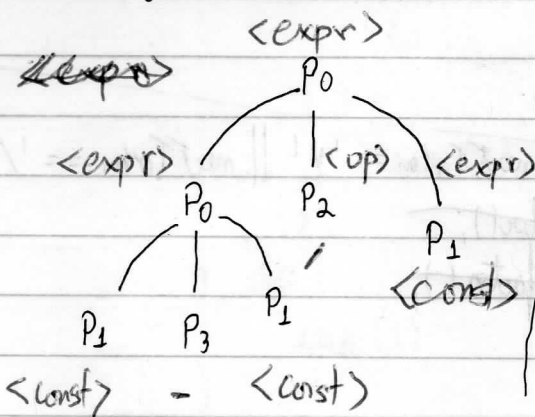 <expr>
<expr> P0
<expr> <op> <expr>
P0 P2 P1
/ <const>
P1 P3 P1
<const> - <const>